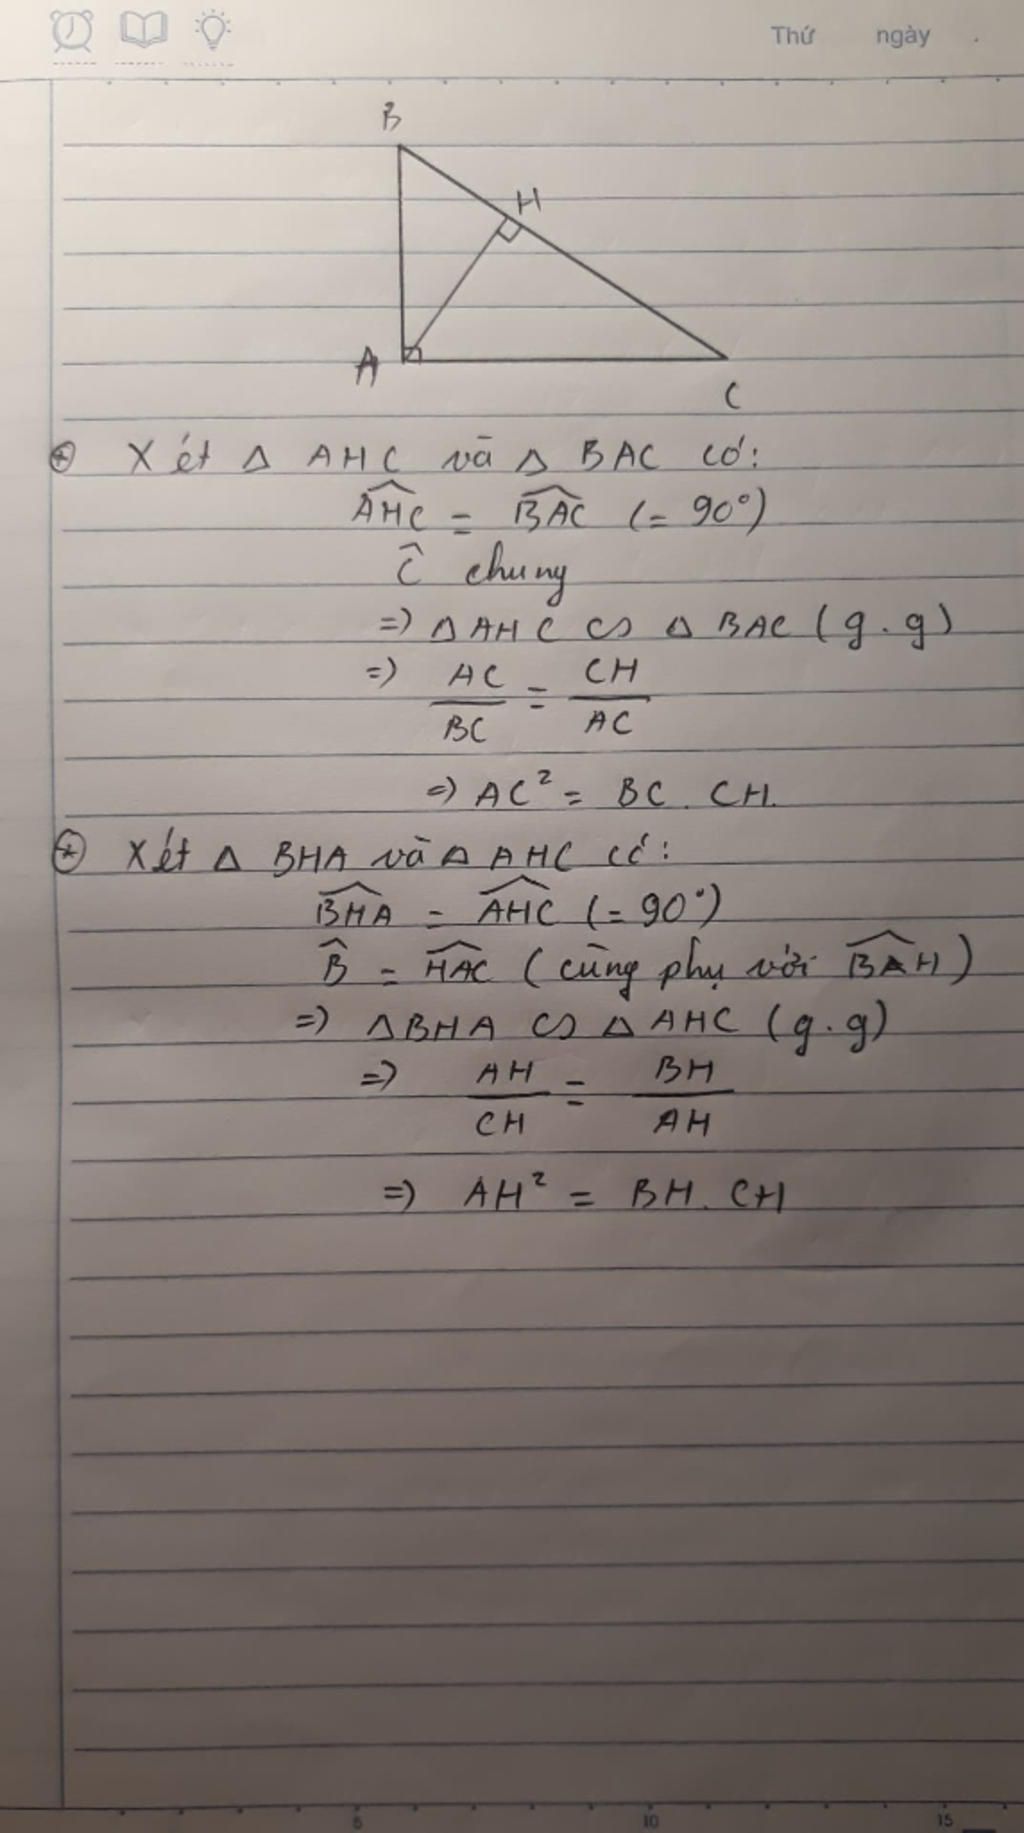 Thứ ngày .
B
H
A
C
⊛ Xét △ AHC và △ BAC có:
\widehat{AHC} = \widehat{BAC} (= 90°)
Ĉ chung
=> △AHC ∽ △ BAC (g.g)
=> AC/BC = CH/AC
=> AC² = BC . CH.
⊛ Xét △ BHA và △ AHC có:
\widehat{BHA} = \widehat{AHC} (= 90°)
B̂ = \widehat{HAC} (cùng phụ với \widehat{BAH})
=> △BHA ∽ △ AHC (g.g)
=> AH/CH = BH/AH
=> AH² = BH . CH
5 10 15